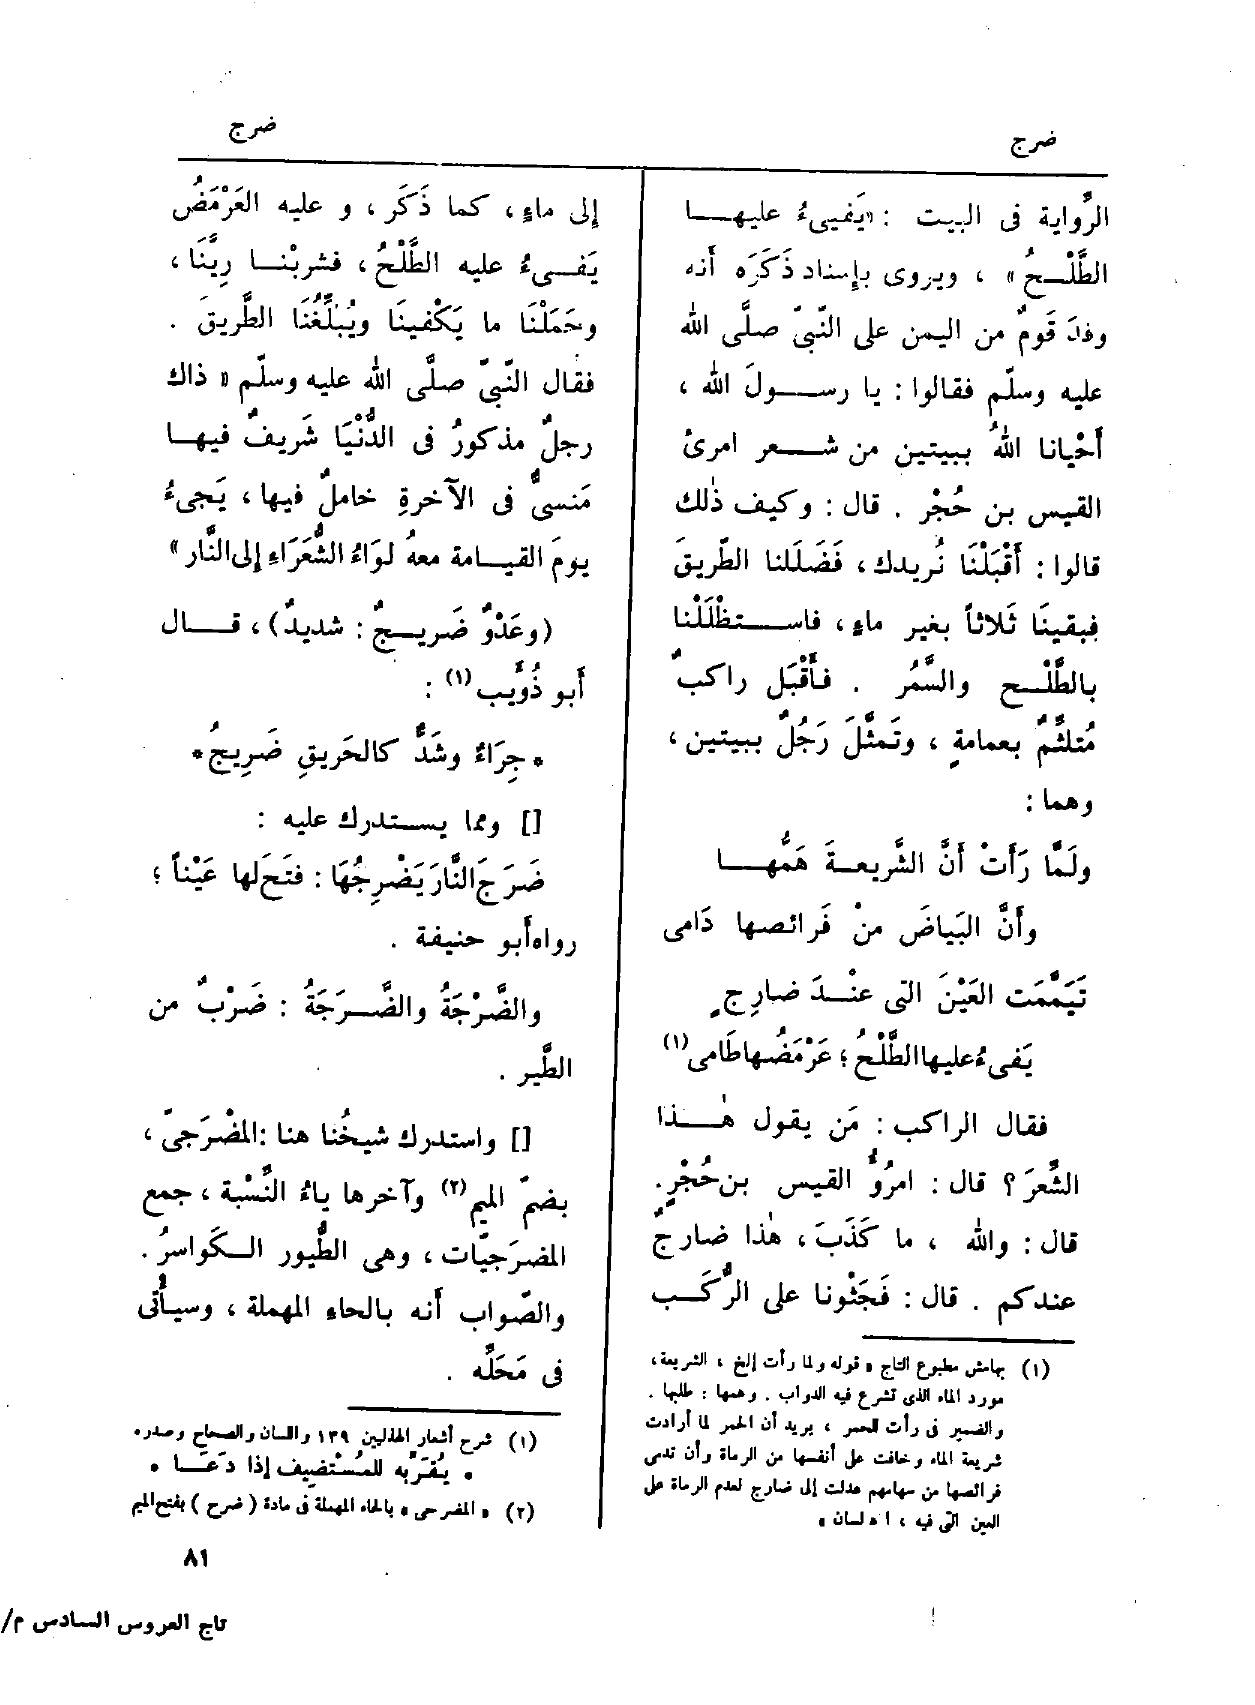 ضرج
ضرج
الرِّواية فى البيت : «يَفيىءُ عليهـا
الطَّلْـحُ» ، ويروى بإسناد ذَكَرَه أنه
وفدَ قَومٌ من اليمن على النَّبىّ صلَّى الله
عليه وسلّم فقالوا : يا رسـولَ الله ،
أَحْيانا اللهُ ببيتين من شـعر امرئ
القيس بن حُجْر . قال : وكيف ذٰلك
قالوا : أَقْبَلْنَا نُريدك ، فَضَلَلنا الطّريقَ
فبقينَا ثَلاثاً بغير ماءٍ ، فاسـتظْلَلْنا
بالطَّلْـح والسَّمُر . فأَقْبَل راكبٌ
مُتلثِّمٌ بعمامةٍ ، وتَمثَّلَ رَجُلٌ ببيتين ،
وهما :
ولَمَّا رَأَتْ أَنَّ الشَّريعـةَ هَمُّهـا
وأَنَّ البَياضَ منْ فَرائصها دَامى
تَيَمَّمَت العَيْنَ التى عنْـدَ ضارِجٍ
يَفىءُ عليها الطَّلْحُ ؛ عَرْمَضُها طَامى(١)
فقال الراكب : مَن يقول هٰـذا
الشِّعرَ ؟ قال : امرُؤُ القيس بن حُجْرٍ.
قال : والله ، ما كَذَبَ ، هٰذا ضارجٌ
عندكم . قال : فَجَثْونا على الرُّكَـب
(١) بهامش مطبوع التاج « قوله ولما رأت إلخ ، الشريعة ،
مورد الماء الذى تشرع فيه الدواب . وهمها : طلبها .
والضمير فى رأت للحمر ، يريد أن الحمر لما أرادت
شريعة الماء وخافت على أنفسها من الرماة وأن تدمى
فرائصها من سهامهم عدلت إلى ضارج لعدم الرماة على
العين التى فيه ، ا ه لسان »
إلى ماءٍ ، كما ذَكَر ، و عليه العَرْمَضُ
يَفـىءُ عليه الطَّلْحُ ، فشربْنـا رِيَّنَا ،
وحَمَلْنَا ما يَكْفينَا ويُبَلِّغُنَا الطَّريقَ .
فقال النّبىّ صلَّى الله عليه وسلّم « ذاك
رجلٌ مذكورٌ فى الدُّنْيَا شَريفٌ فيهـا
مَنسىٌّ فى الآخرةِ خاملٌ فيها ، يَجىءُ
يومَ القيـامة معهُ لوَاءُ الشُّعَرَاءِ إلى النَّار »
(وعَدْوٌ ضَريـجٌ : شديدٌ) ، قـال
أَبو ذُؤَيب(١) :
* جِرَاءٌ وشَدٌّ كالحَريقِ ضَرِيجُ *
[] ومما يسـتدرك عليه :
ضَرَجَ النَّارَ يَضْرِجُهَا : فتَحَ لها عَيْناً ؛
رواه أبو حنيفة .
والضَّرْجَةُ والضَّـرَجَةُ : ضَرْبٌ من
الطَّير .
[] واستدرك شيخُنا هنا : المُضْرَجىّ ،
بضمّ الميم(٢) وآخرها ياءُ النِّسْبة ، جمع
المضرَجيّات ، وهى الطُّيور الـكَواسرُ .
والصّواب أَنه بالحاء المهملة ، وسيأْتى
فى مَحَلِّه .
(١) شرح أشعار الهذليين ١٣٩ واللسان والصحاح وصدره
* يُقَرِّبه للمُسْتضيف إذا دَعَـا *
(٢) « المضرحى » بالحاء المهملة فى مادة ( ضرح ) بفتح الميم
٨١
تاج العروس السادس م/